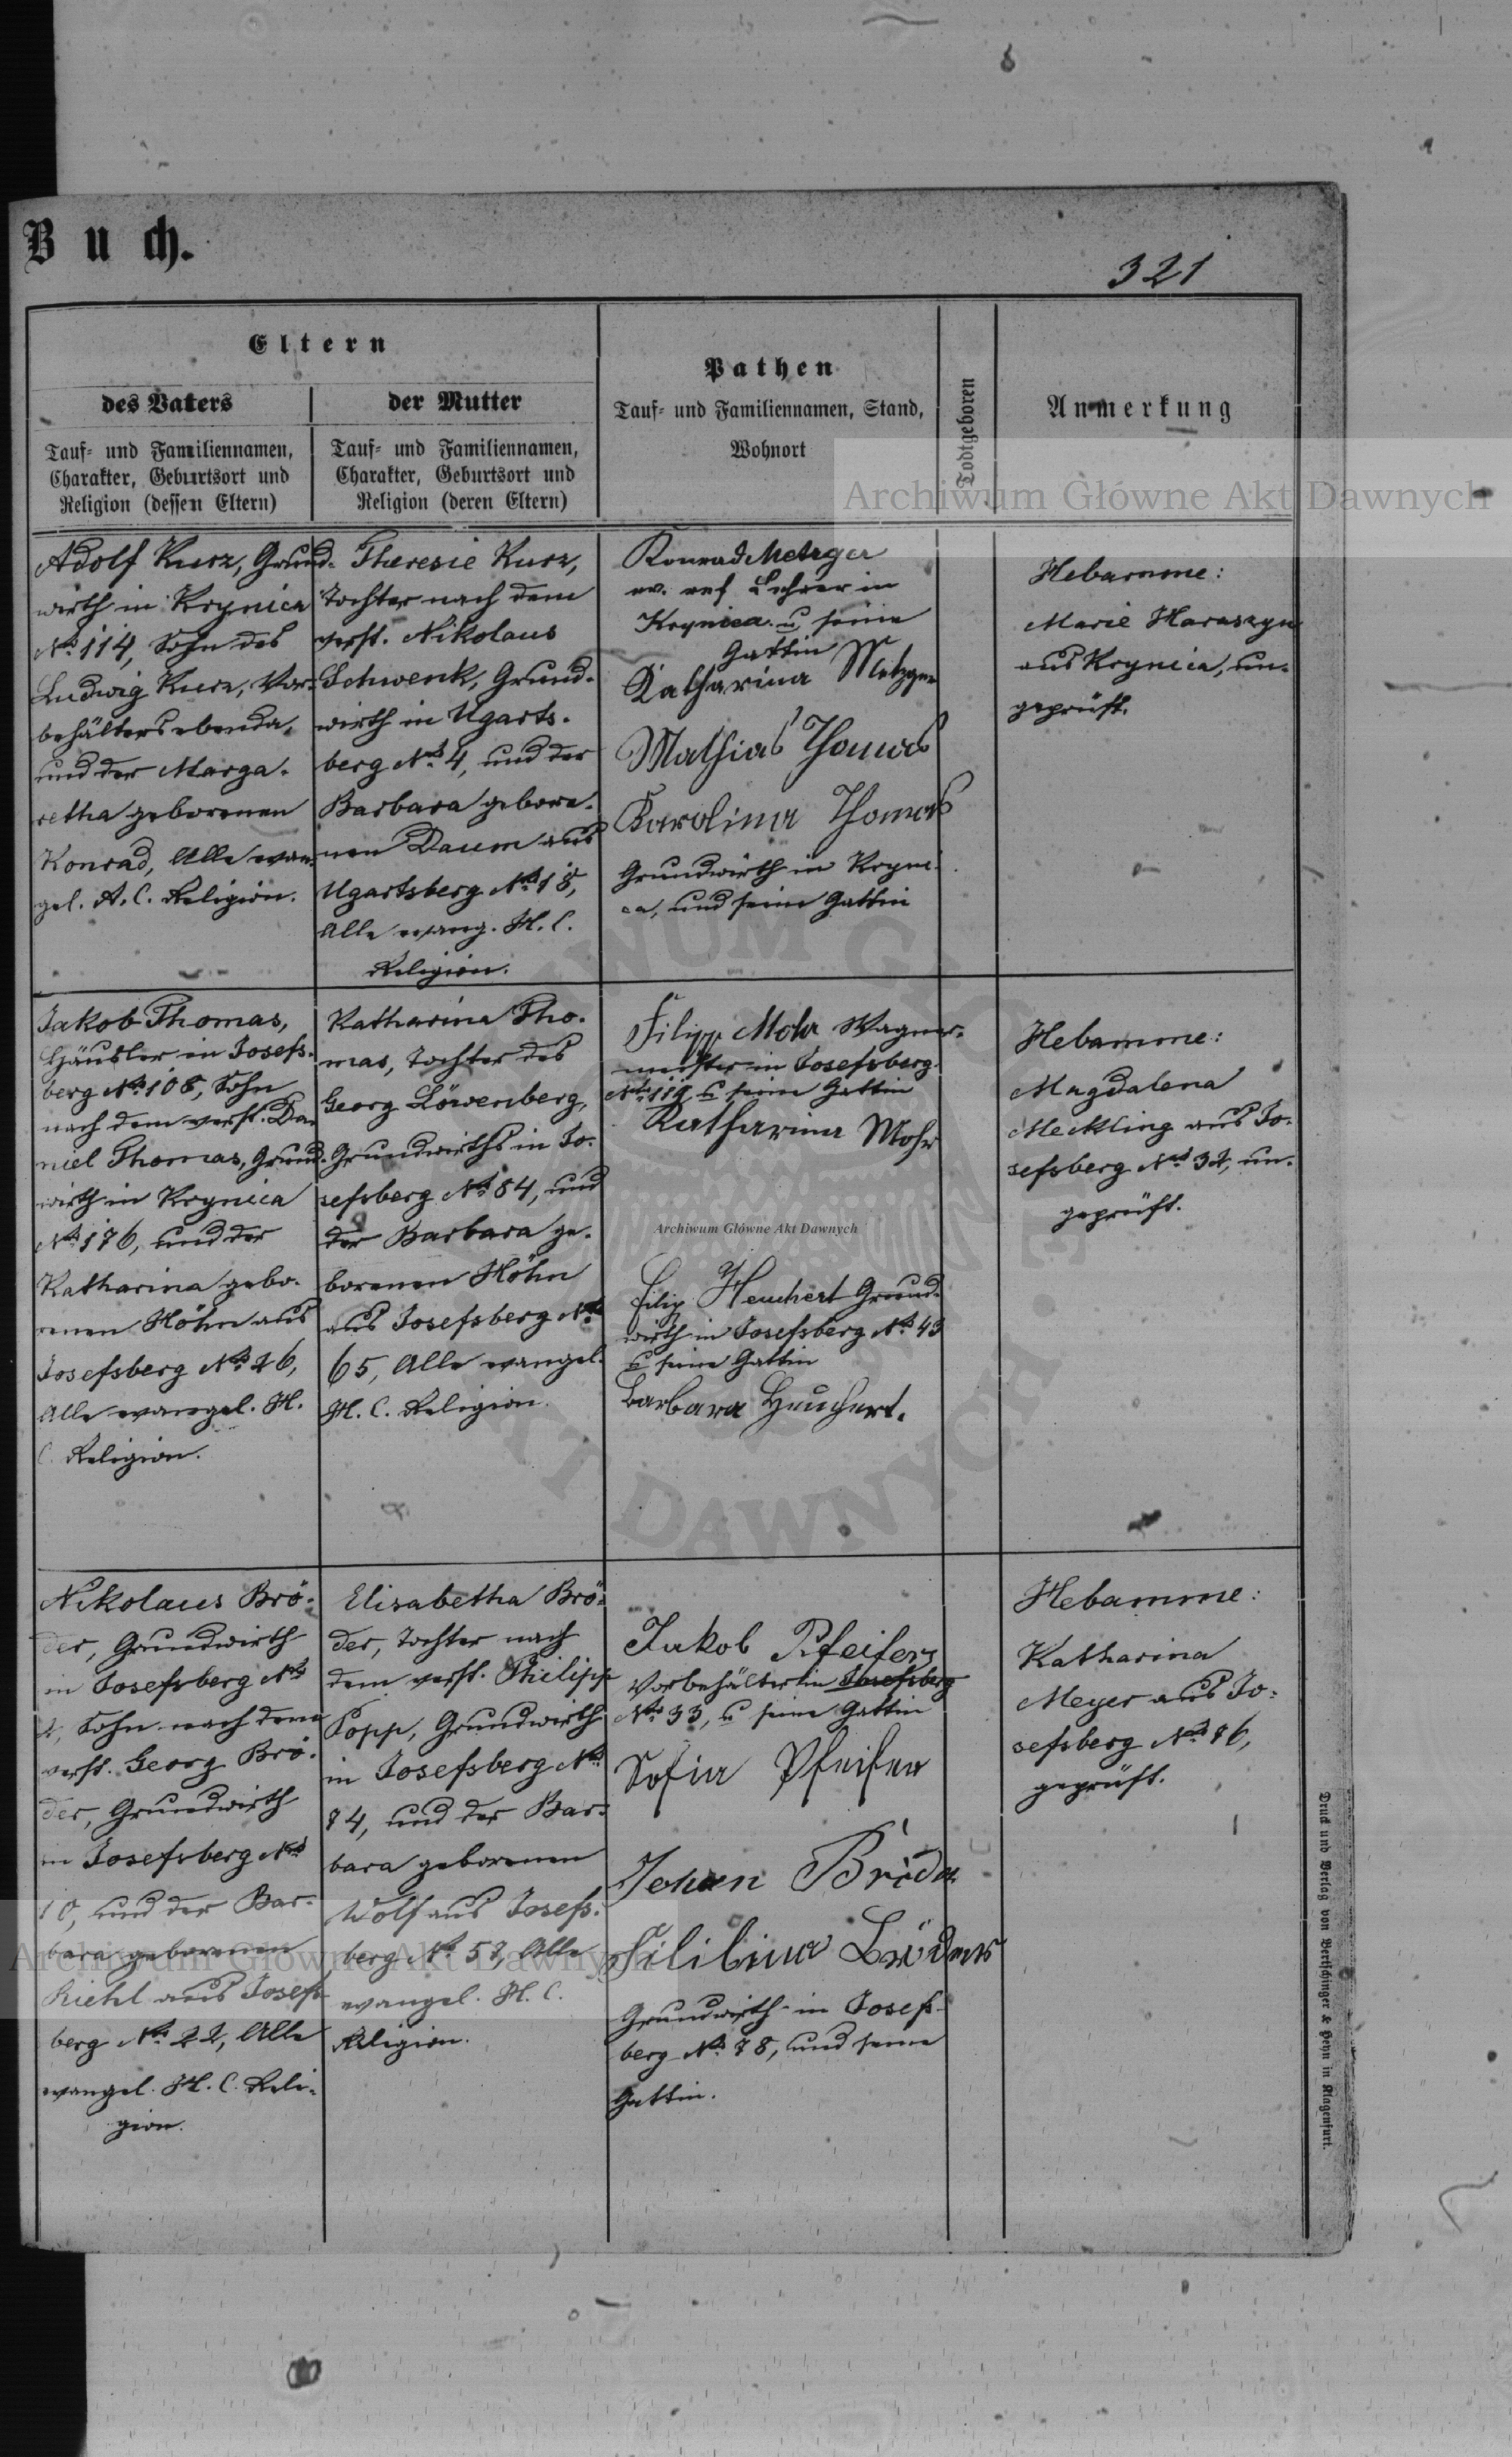 Buch.
321
Eltern
des Vaters
der Mutter
Tauf- und Familiennamen,
Charakter, Geburtsort und
Religion (dessen Eltern)
Tauf- und Familiennamen,
Charakter, Geburtsort und
Religion (deren Eltern)
Pathen
Tauf- und Familiennamen, Stand,
Wohnort
Todtgeboren
Anmerkung
Archiwum Główne Akt Dawnych
Adolf Kurz, Grund-
wirth in Krynica
No 114, Sohn des
Ludwig Kurz, Vor-
behälters ebenda,
und der Marga-
retha geborenen
Konrad, Alle evan-
gel. A. C. Religion.
Theresie Kurz,
Tochter nach dem
verst. Nikolaus
Schwenk, Grund-
wirth in Ugarts-
berg No 4, und der
Barbara gebore-
nen Daum aus
Ugartsberg No 18,
Alle evang. H. C.
Religion.
Konrad Metzger
ev. ref Lehrer in
Krynica u seine
Gattin
Katharina Metzger
Mathias Thomas
Karolina Thomas
Grundwirth in Kryni-
ca, und seine Gattin
Hebamme:
Marie Haraszyn
aus Krynica, un-
geprüft.
Jakob Thomas,
Häusler in Josefs-
berg No 108, Sohn
nach dem verst. Da-
niel Thomas, Grund-
wirth in Krynica
No 176, und der
Katharina gebo-
renen Höhn aus
Josefsberg No 26,
Alle evangel. H.
C. Religion.
Katharina Tho-
mas, Tochter des
Georg Löwenberg,
Grundwirths in Jo-
sefsberg No 84, und
der Barbara ge-
borenen Höhn
aus Josefsberg No
65, Alle evangel.
H. C. Religion.
Filipp Mohr Wagner-
meister in Josefsberg
No 119 u seine Gattin
Katharina Mohr
Archiwum Główne Akt Dawnych
Filip Heuchert Grund-
wirth in Josefsberg No 43
u seine Gattin
Barbara Heuchert.
Hebamme:
Magdalena
Meckling aus Jo-
sefsberg No 32, un-
geprüft.
Nikolaus Brö-
der, Grundwirth
in Josefsberg No
Sohn nach dem
verst. Georg Brö-
der, Grundwirth
in Josefsberg No
10, und der Bar-
bara geborenen
Riehl aus Josefs-
berg No 22, Alle
evangel. H. C. Reli-
gion.
Elisabetha Brö-
der, Tochter nach
dem verst. Philipp
Popp, Grundwirth
in Josefsberg No
74, und der Bar-
bara geborenen
Wolf aus Josefs-
berg No 57, Alle
evangel. H. C.
Religion.
Jakob Pfeifer
Vorbehälter in Josefsberg
No 33, u seine Gattin
Sofia Pfeifer
Johan Bröder
Filibina Bröder
Grundwirth in Josefs-
berg No 78, und seine
Gattin.
Hebamme:
Katharina
Meyer aus Jo-
sefsberg No 76,
geprüft.
Archiwum Główne Akt Dawnych
Druck und Verlag von Bertschinger & Heyn in Klagenfurt.